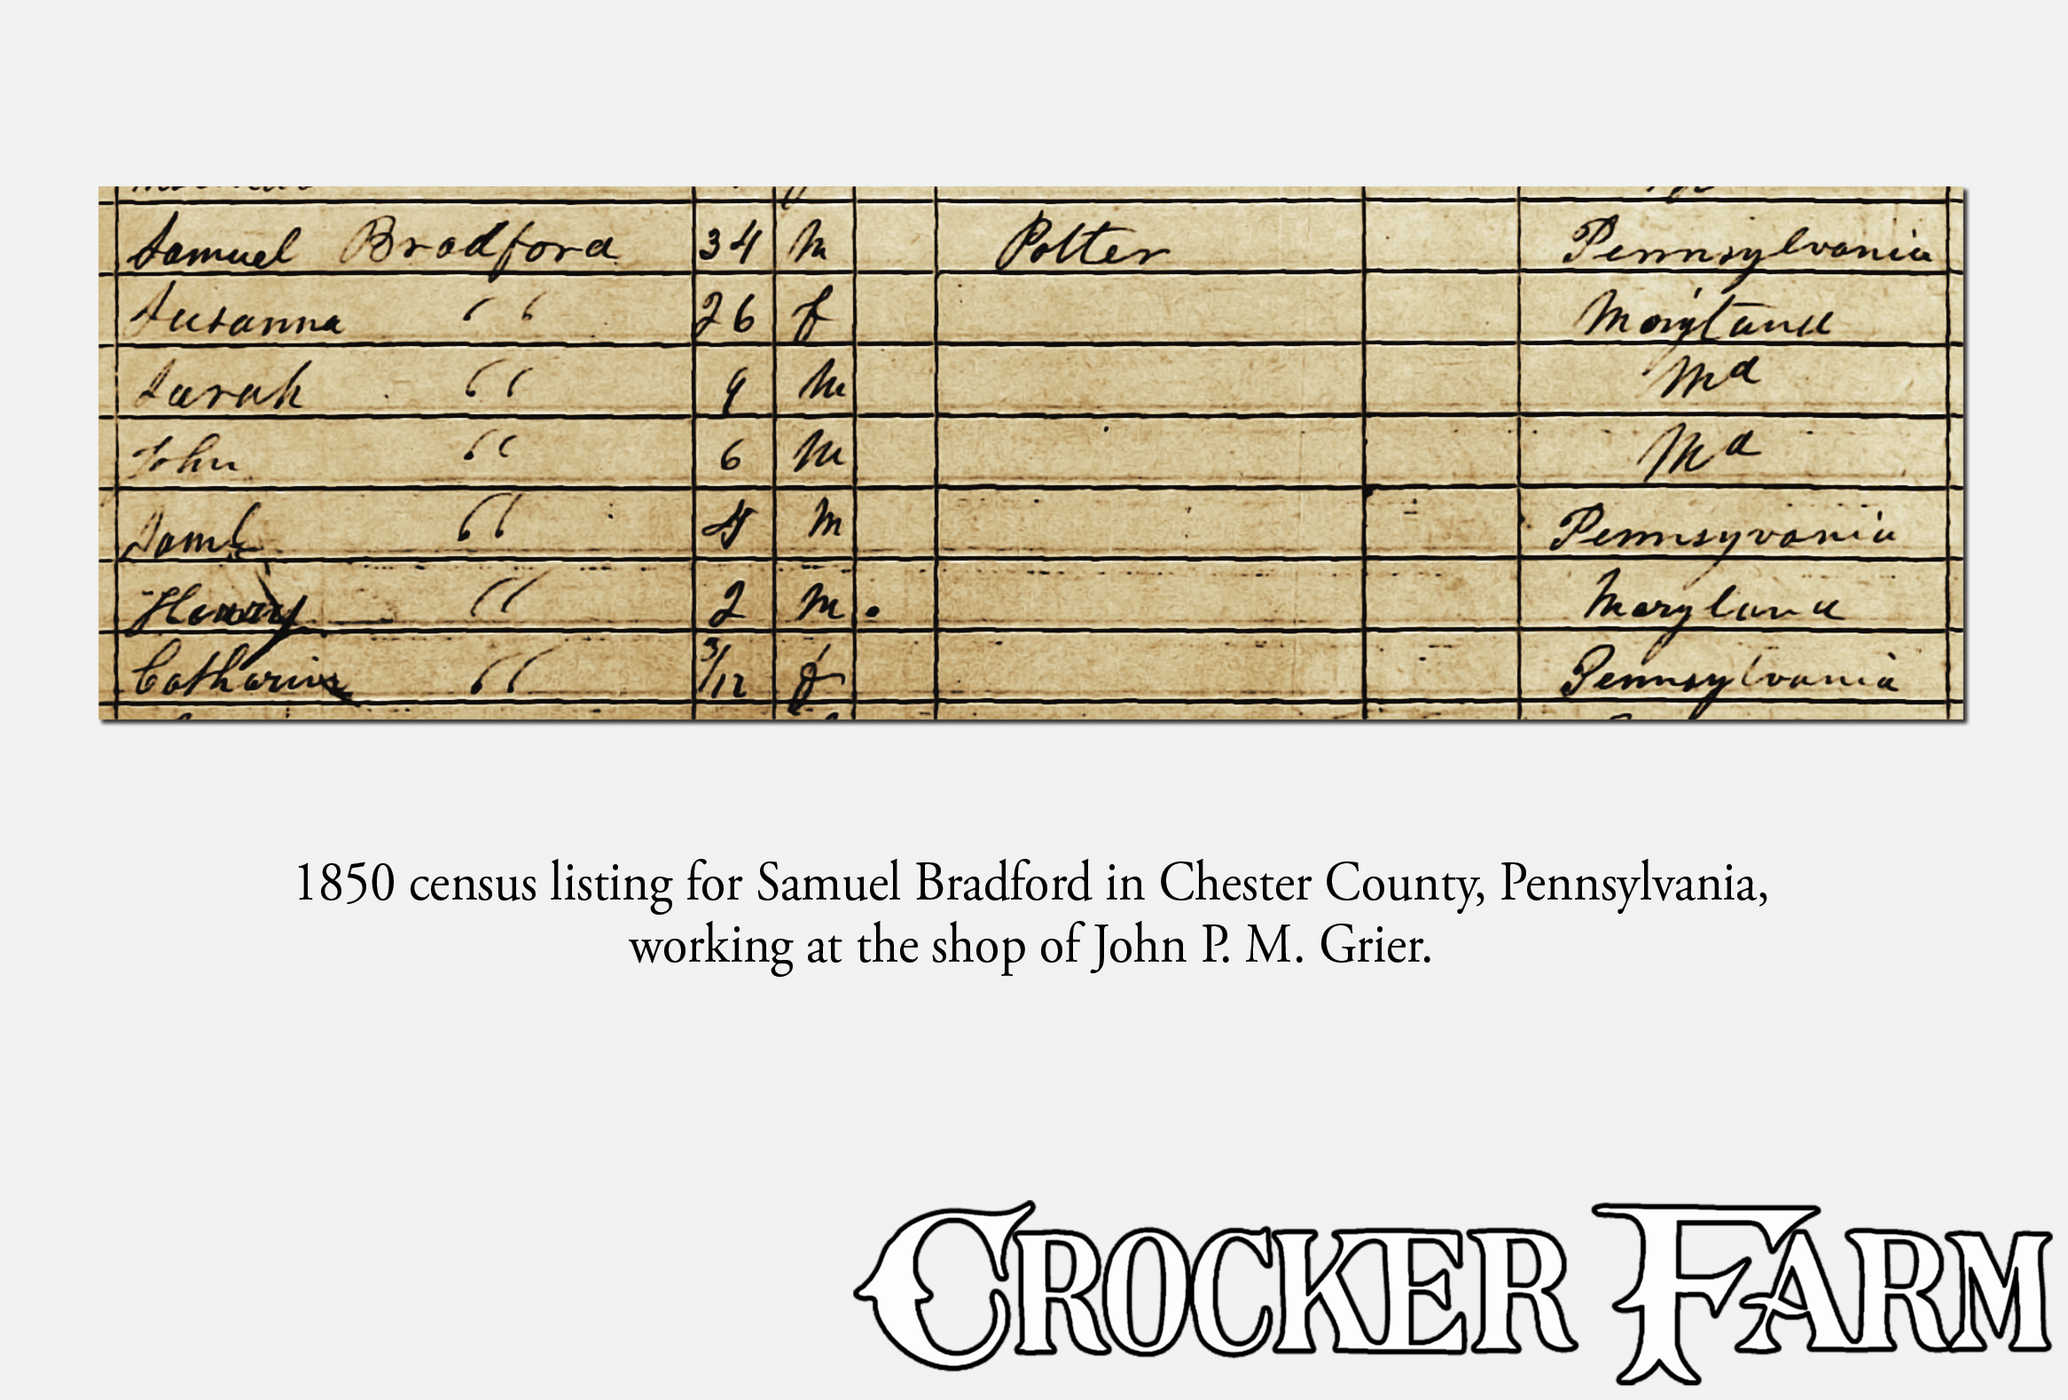 Samuel Bradford 34 m Potter Pennsylvania
Susanna " 26 f Maryland
Sarah " 9 m Md
John " 6 m Md
Saml " 4 m Pennsyvania
Henry " 2 m Maryland
Catharine " 3/12 f Pennsylvania
1850 census listing for Samuel Bradford in Chester County, Pennsylvania,
working at the shop of John P. M. Grier.
CROCKER FARM